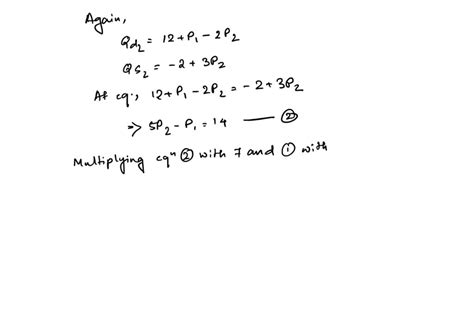 Again,
Qd₂ = 12+P₁ - 2P₂
QS₂ = -2 + 3P₂
At eq., 12+P₁ - 2P₂ = -2 + 3P₂
⇒ 5P₂ - P₁ = 14 —— ②
Multiplying eqⁿ ② with 7 and ① with